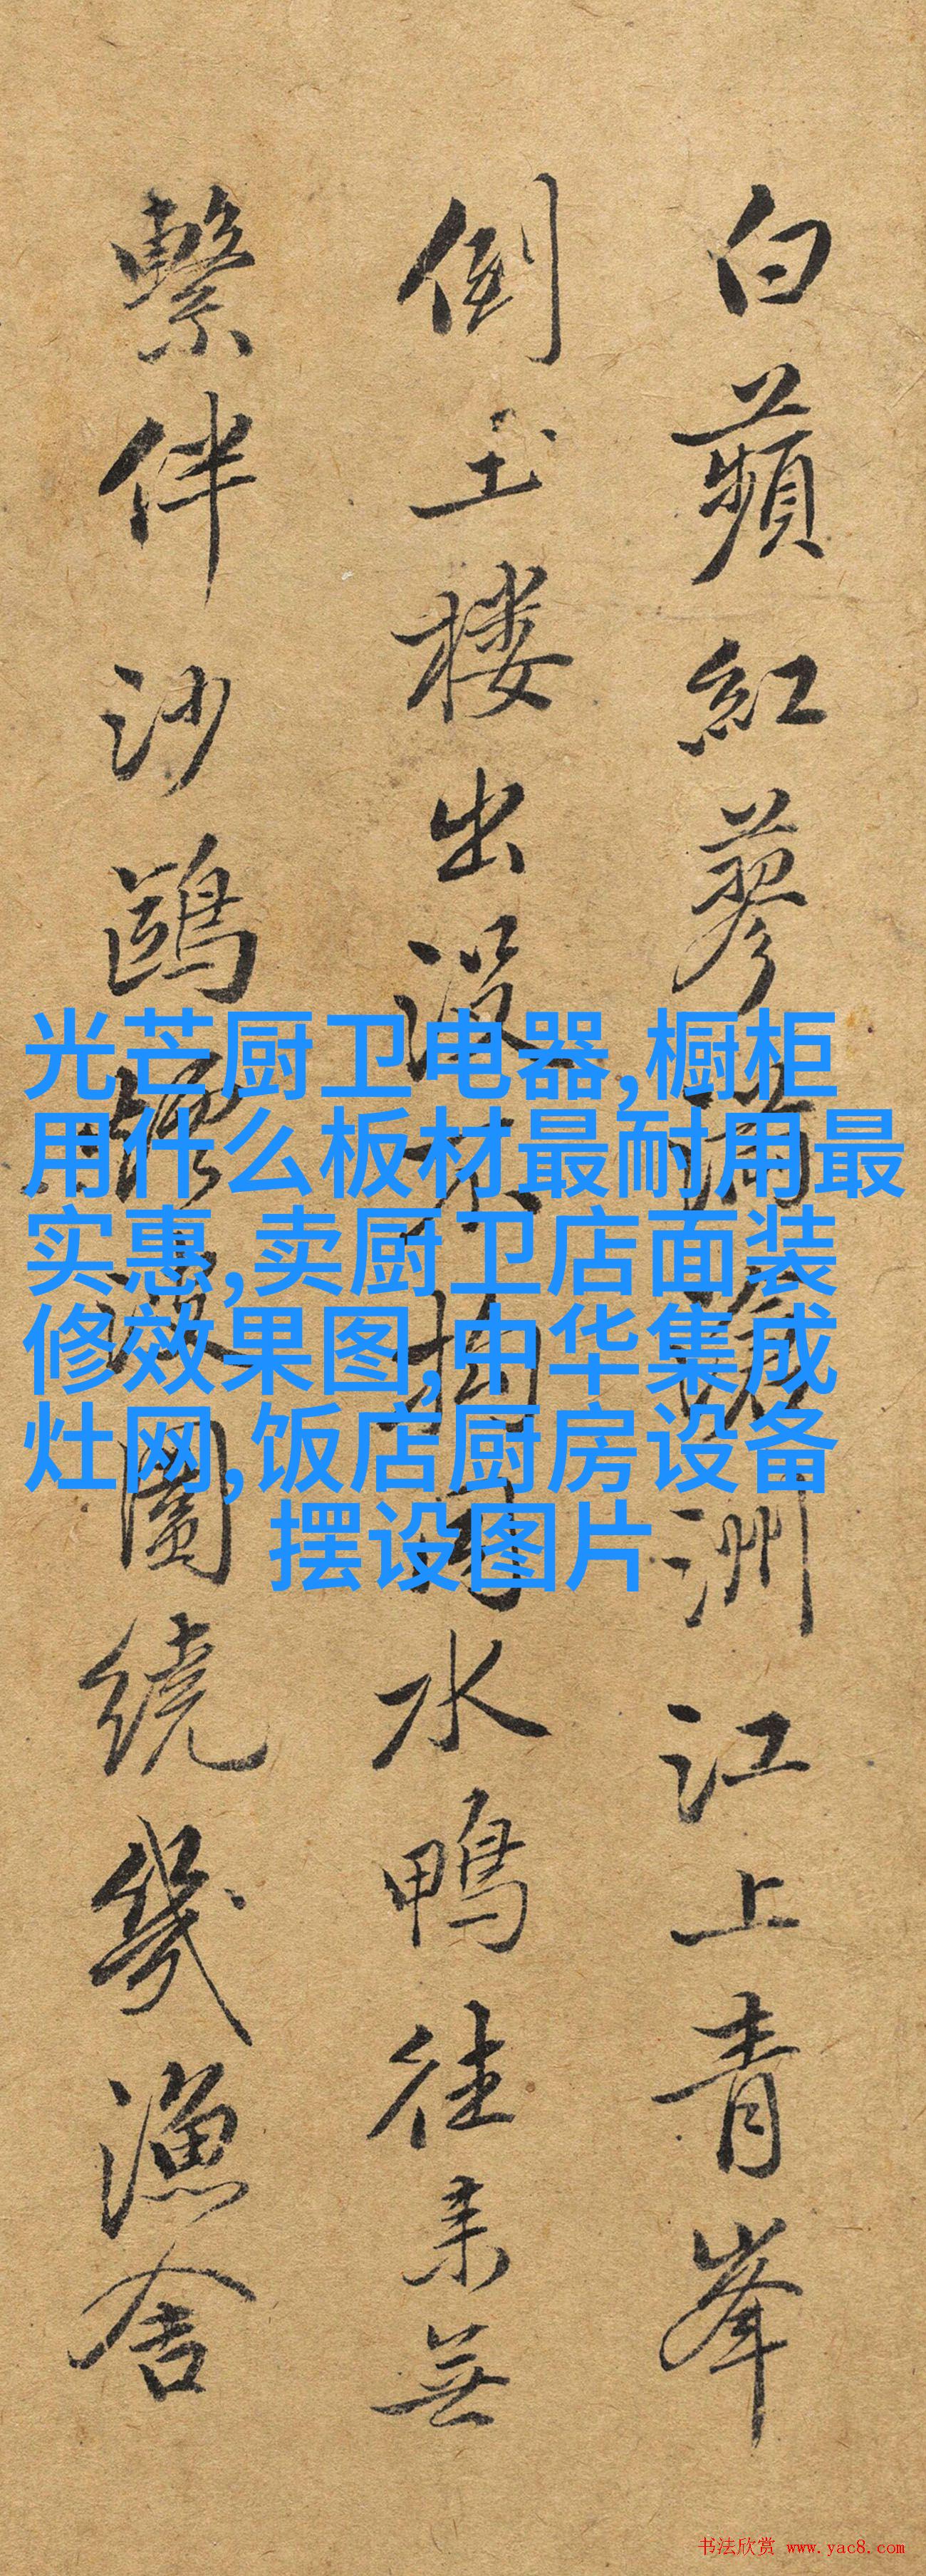 白蘋紅蓼滿滄洲江上青峯
倒玉楼出没不拘同水鴨往来无
繫伴沙鷗 圖繞幾漁舍
光芒厨卫电器,橱柜
用什么板材最耐用最
实惠,卖厨卫店面装
修效果图,中华集成
灶网,饭店厨房设备
摆设图片
书法欣赏 www.yac8.com